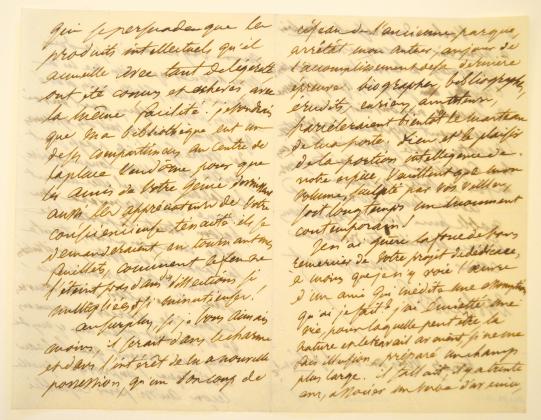 qui se persuadera que les
produits intellectuels qu'il
accueille avec tant de légèreté
ont été conçus et achevés avec
la même facilité. Je voudrais
que ma bibliothèque eut un
de ses compartiments au centre de
la place Vendôme pour que
les amis de votre génie
aussi les appréciateurs de votre
consciencieuse ténacité ils se
demanderaient, en tournant mes
feuillets, comment
si
multipliées, si minutieuses!
Au surplus, si je vous aimais
moins, il serait dans le charme
et dans l'intérêt de la nouvelle
possession, qu'un bon coup de
ciseau de l'ancienne parque,
arrêtât mon auteur, au jour de
l'accomplissement de sa dernière
épreuve. biographes, bibliographes,
érudits, envieux, amateurs,
bientôt le marteau
de ma porte. Dieu, et le plaisir
de la portion intelligente de
notre espèce, veuillent que mon
volume, sculpté par vos veilles,
soit longtemps un monument
contemporain!
Je n'ai guère la force de vous
remercier de votre projet de dédicace,
à moins que je n'y voie l'œuvre
d'un ami
qu'ai-je fait? j'ai émietté une
vie, pour laquelle peut être la
nature et le travail avaient, si ne me
fais illusion, préparé un champ
plus large. il fallait, il y a trente
ans,